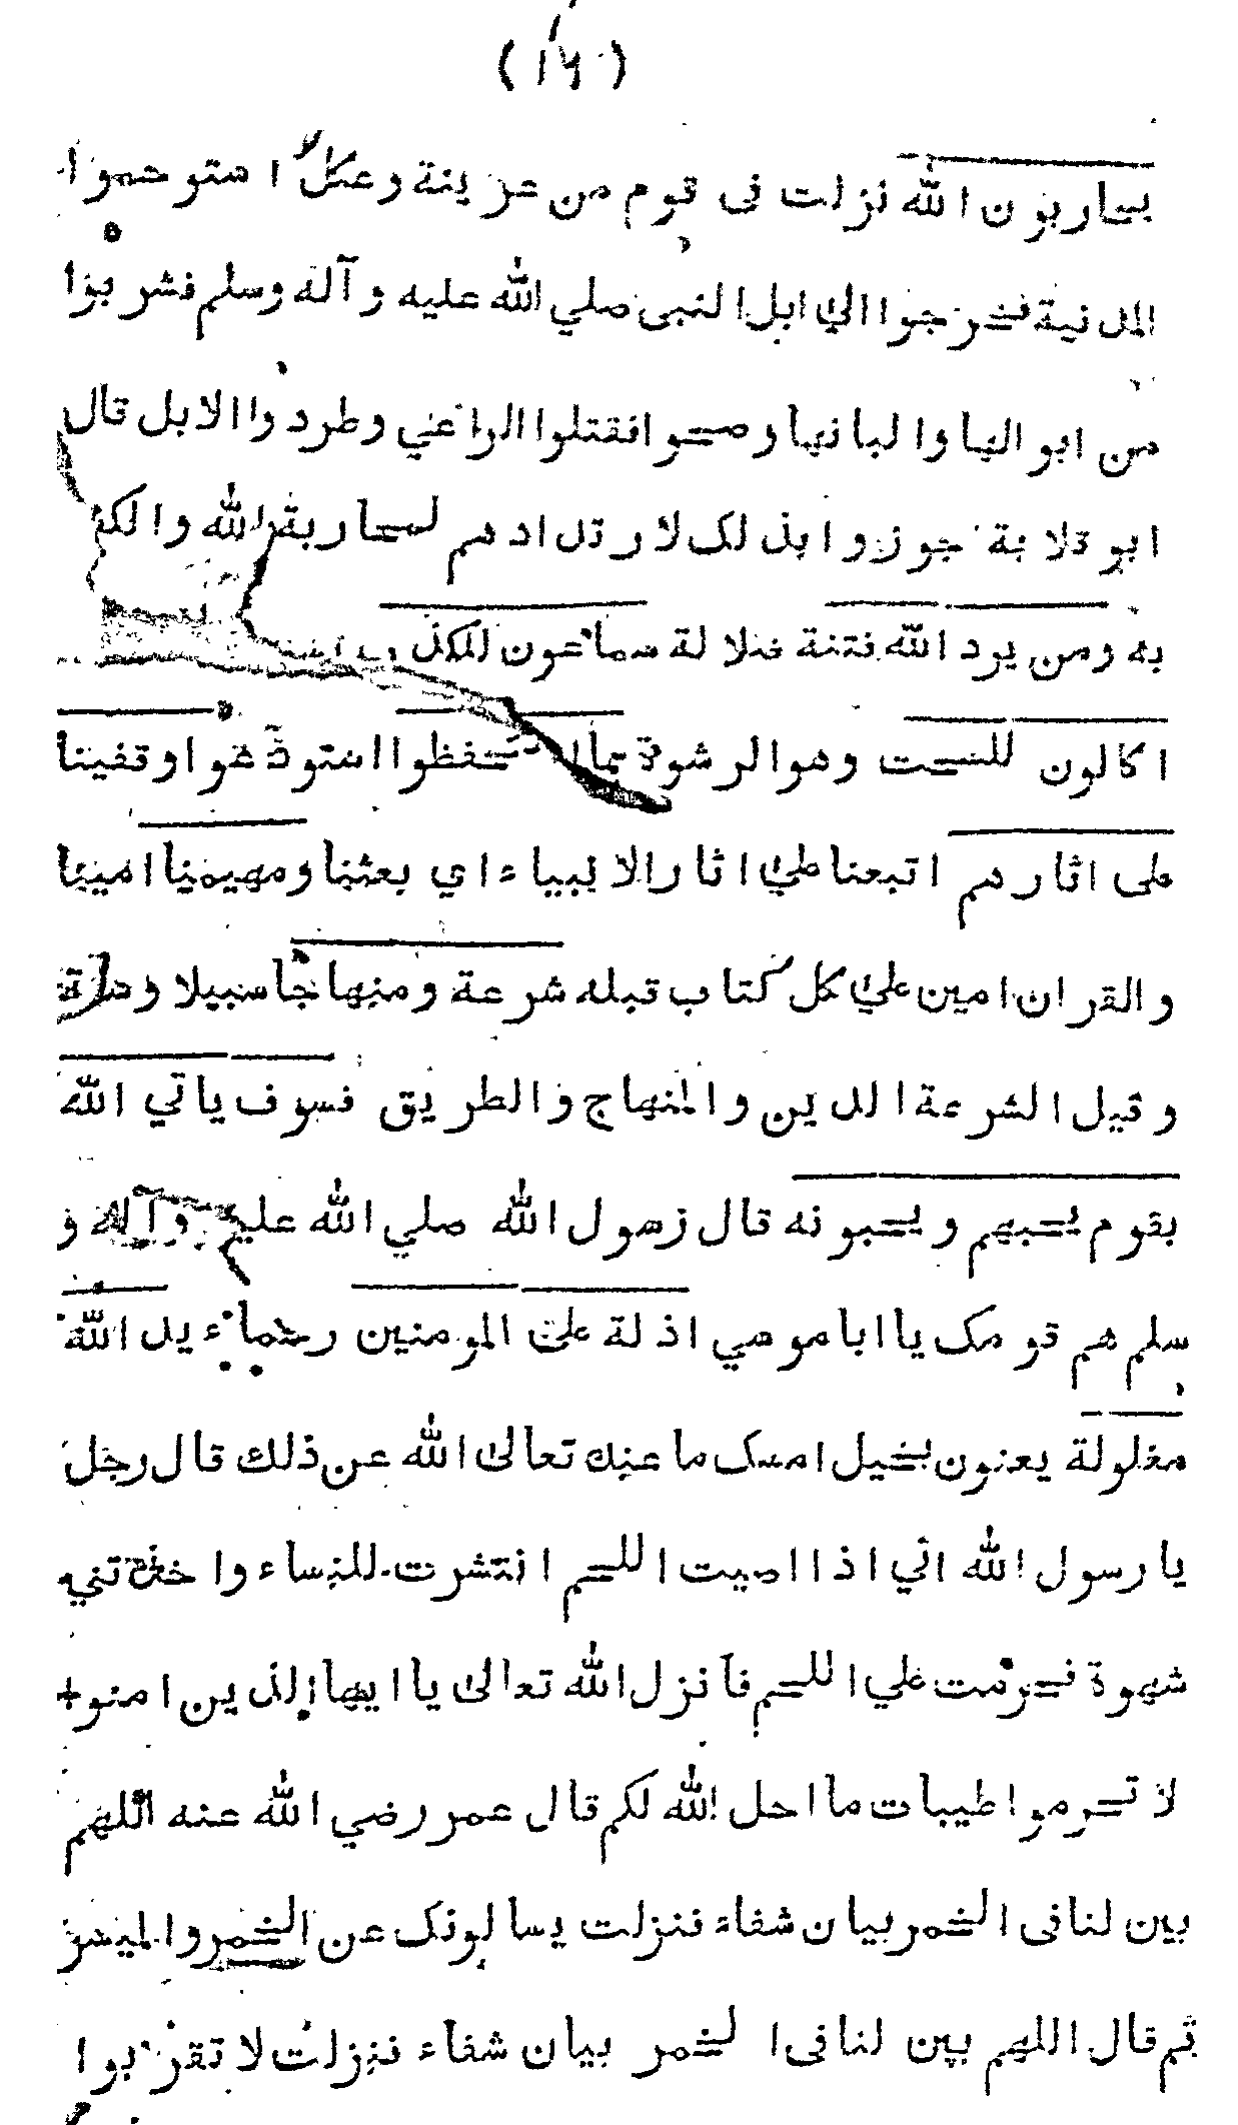 (١٦)
يحاربون الله نزلت فى قوم من عرينة وعكل استوخموا
المدنية فخرجوا الي ابل النبى صلي الله عليه وآله وسلم فشربوا
من ابوالها والبانها وصحوا فقتلوا الراعي وطردوا الابل قال
ابوقلابة جوزوا بذلك لارتدادهم لمحاربة الله والكفر
به ومن يرد الله فتنة ضلالة سماعون للكذب
اكالون للسحت وهو الرشوة بما استحفظوا استودعوا وقفينا
على اثارهم اتبعنا علي اثار الانبياء اي بعثنا ومهيمنا امينا
والقران امين علي كل كتاب قبله شرعة ومنهاجا سبيلا وسنة
وقيل الشرعة الدين والمنهاج والطريق فسوف ياتي الله
بقوم يحبهم ويحبونه قال رسول الله صلي الله عليه وآله و
سلم هم قومك يا ابا موسي اذلة علي المومنين رحماء يد الله
مغلولة يعنون بخيل امسك ما عنده تعالى الله عن ذلك قال رجل
يا رسول الله اني اذا اصبت اللحم انتشرت للنساء واخذتني
شهوة فحرمت علي اللحم فانزل الله تعالى يا ايها الذين امنوا
لا تحرموا طيبات ما احل الله لكم قال عمر رضي الله عنه اللهم
بين لنا فى الخمر بيان شفاء فنزلت يسالونك عن الخمر والميسر
ثم قال اللهم بين لنا فى الخمر بيان شفاء فنزلت لا تقربوا